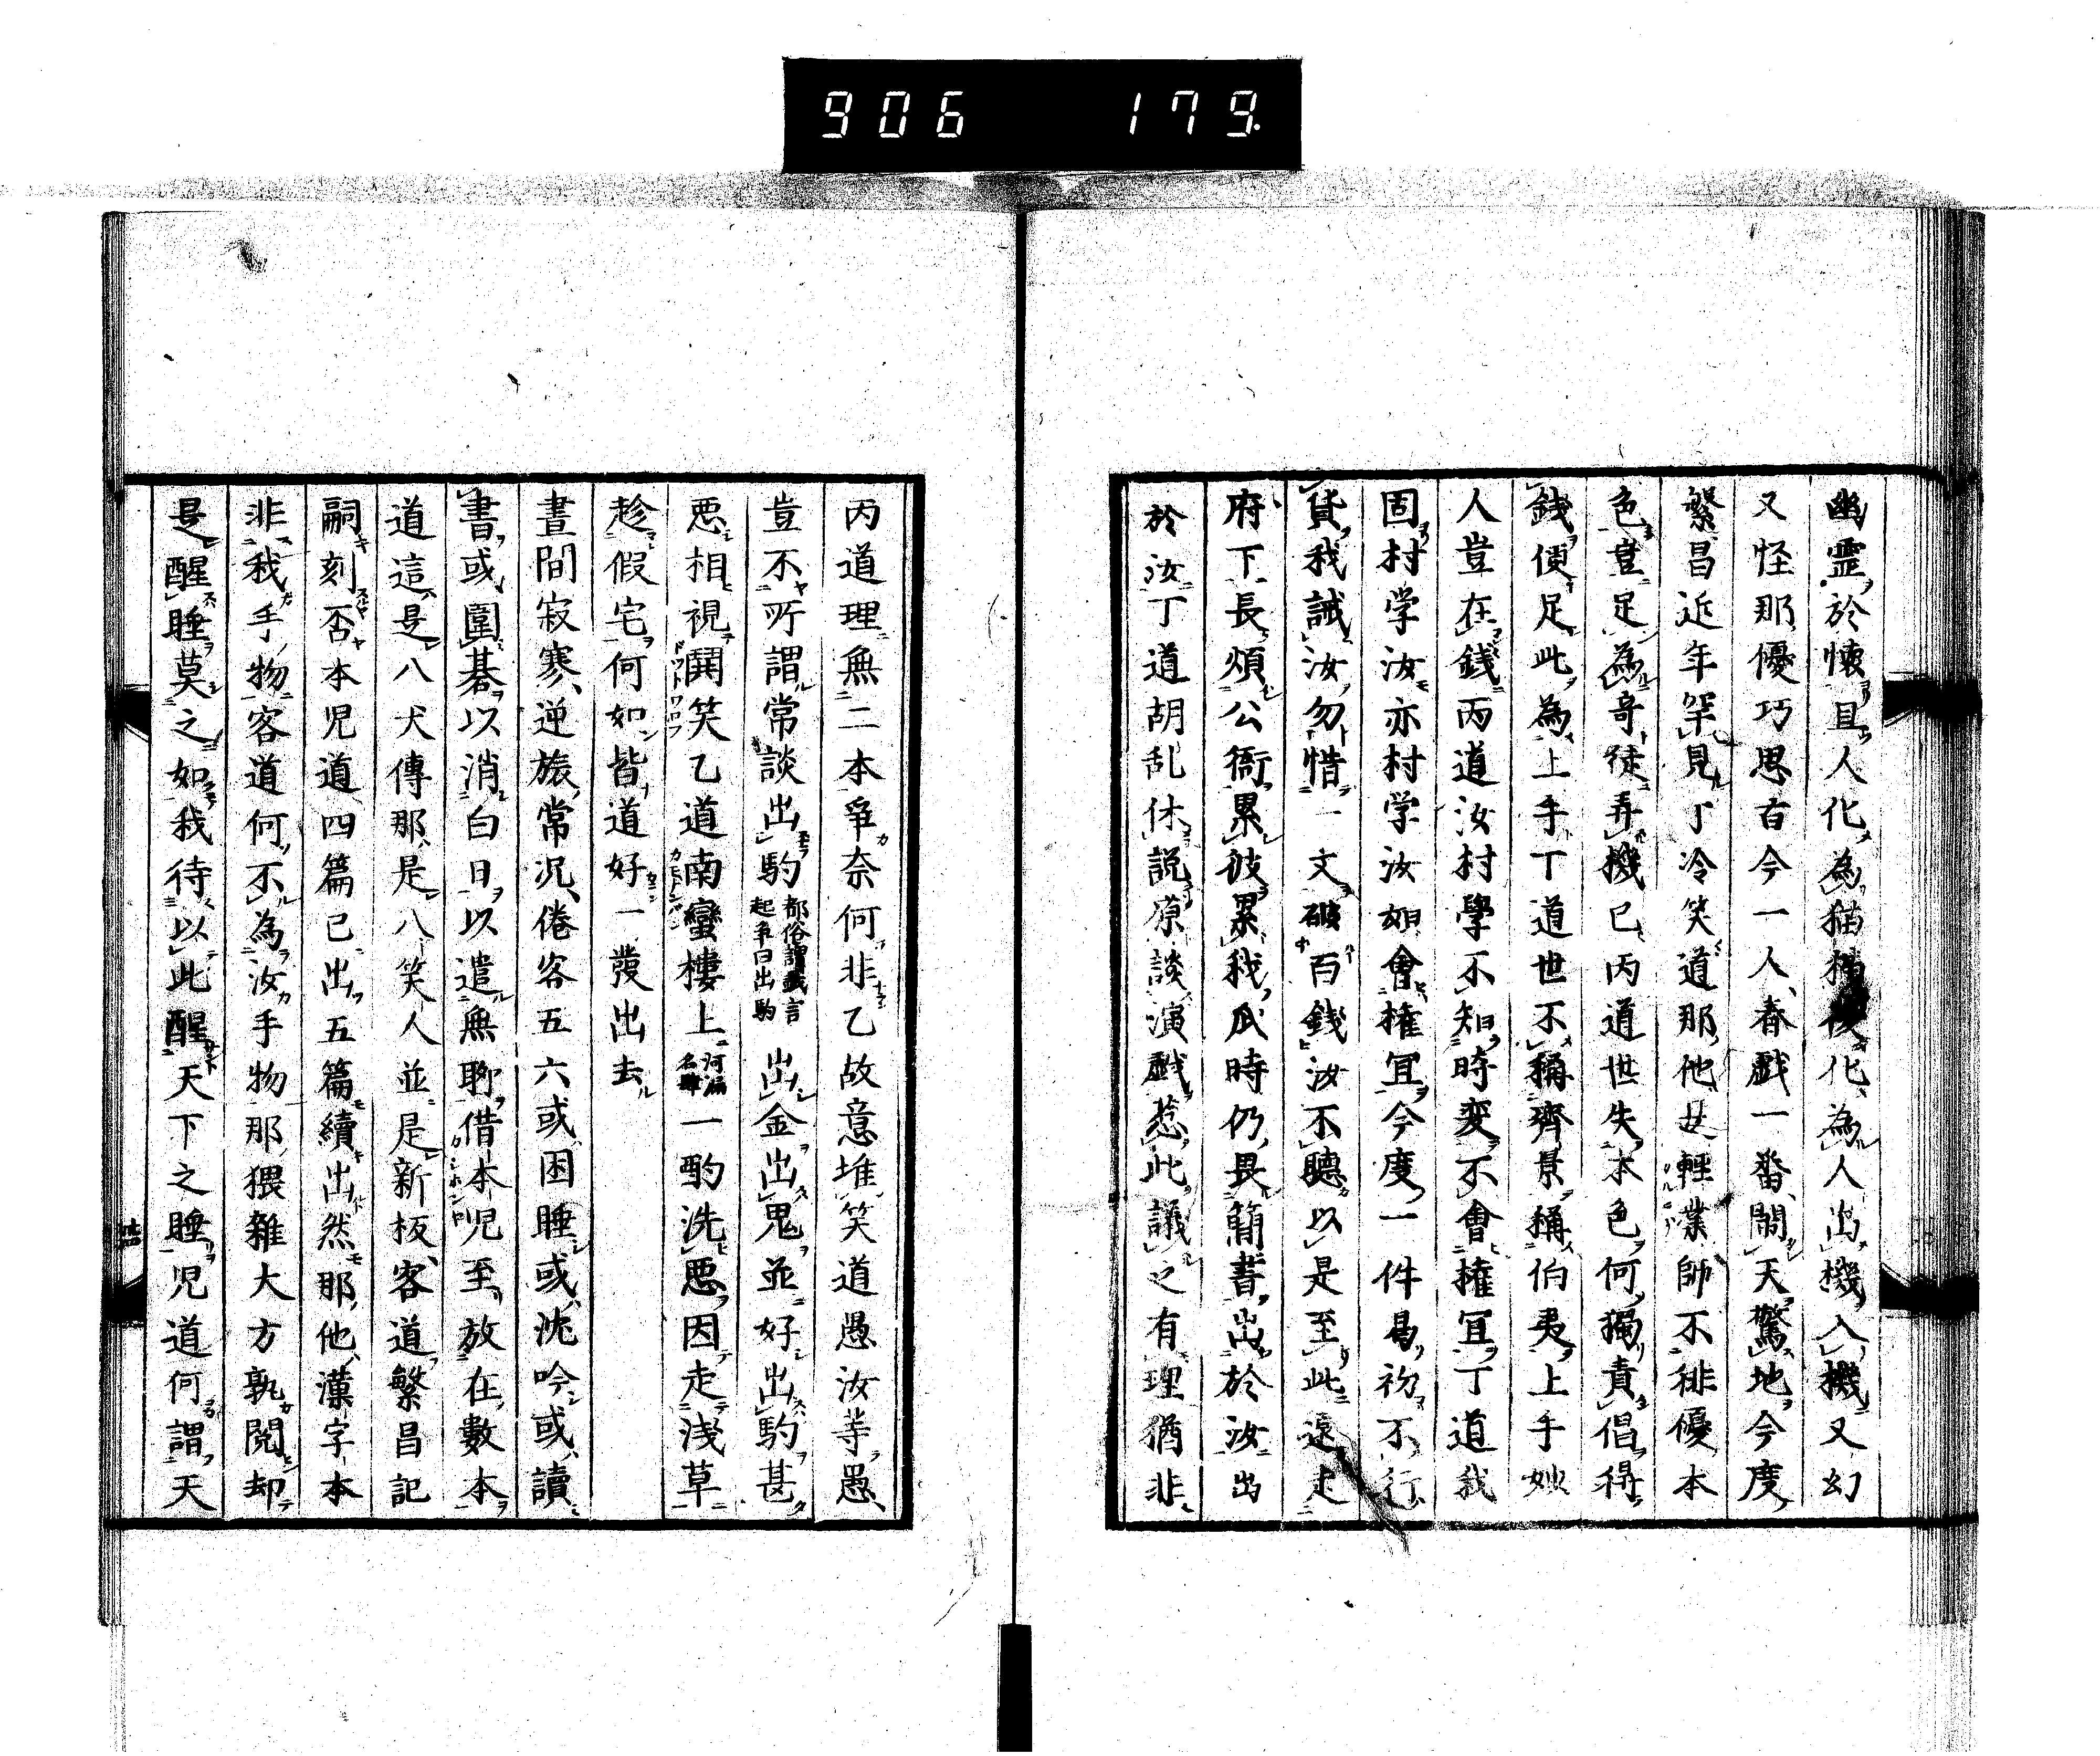 906 179
幽霊於懐且人化為猫猫復化為人出機入機又幻
又怪那優巧思古今一人春戯一番鬧天驚地今度
繁昌近年罕見丁冷笑道那他廿軽業師不徘優本
色豈足為奇徒弄機已丙道世失本色何獨責倡得
銭便足此為上手丁道世不稱齊景稱伯夷上手妙
人豈在銭丙道汝村學不知時変不會権宜丁道我
固村学汝亦村学汝如會権宜今度一件曷初不行
貨我誡汝勿惜一文破百銭汝不聽以是至此遠走
府下長煩公衙累彼累我瓜時仍畏簡書出於汝出
於汝丁道胡乱休説原談演戯惹此議之有理猶非
丙道理無二本爭奈何非乙故意堆笑道愚汝等愚
豈不所謂常談出駒都俗謂戯言起爭曰出駒出金出鬼並好出駒甚
悪相視鬨笑乙道南蠻樓上河漏名肆一酌洗悪因走淺草
趁假宅何如皆道好一發出去
晝間寂寥逆旅常況倦客五六或困睡或沈吟或讀
書或圍碁以消白日以遣無聊借本児至放在數本
道這是八犬傳那是八笑人並是新板客道繁昌記
嗣刻否本児道四篇已出五篇續出然那他漢字本
非我手物客道何不為汝手物那猥雜大方孰閲却
是醒睡莫之如我待以此醒天下之睡児道何謂天